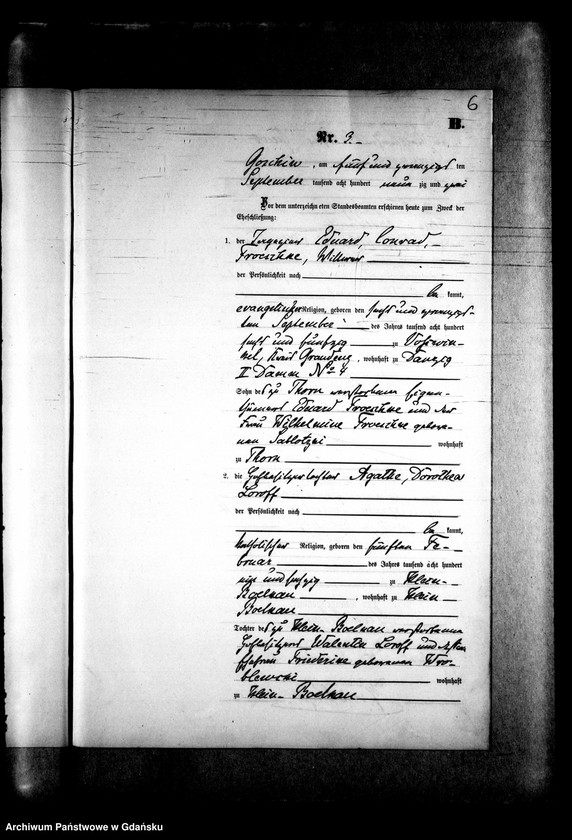 6
B.
Nr. 3.
Goschin, am fünf und zwanzigsten
September tausend acht hundert neun zig und zwei
Vor dem unterzeichneten Standesbeamten erschienen heute zum Zweck der
Eheschließung:
1. der Eduard, Conrad,
Troeschke,
der Persönlichkeit nach
be kannt,
evangelischer Religion, geboren den sechs und zwanzigs-
ten September des Jahres tausend acht hundert
sechs und fünfzig zu Voßwin-
kel, Kreis Graudenz, wohnhaft zu Danzig
II Damm No 4
Sohn des zu Thorn verstorbenen Eigen-
thümers Eduard Troeschke und der
Frau Wilhelmine Troeschke gebore-
nen wohnhaft
zu Thorn
2. die Hofbesitzertochter Agathe, Dorothea
Loroff
der Persönlichkeit nach
be kannt,
katholischer Religion, geboren den fünften Fe-
bruar des Jahres tausend acht hundert
und sechzig zu Klein-
Boelkau, wohnhaft zu Klein-
Boelkau
Tochter des zu Klein-Boelkau verstorbenen
Hofbesitzers Valentin Loroff und dessen
Ehefrau Friederike geborenen Wro-
blewski wohnhaft
zu Klein-Boelkau
Archiwum Państwowe w Gdańsku